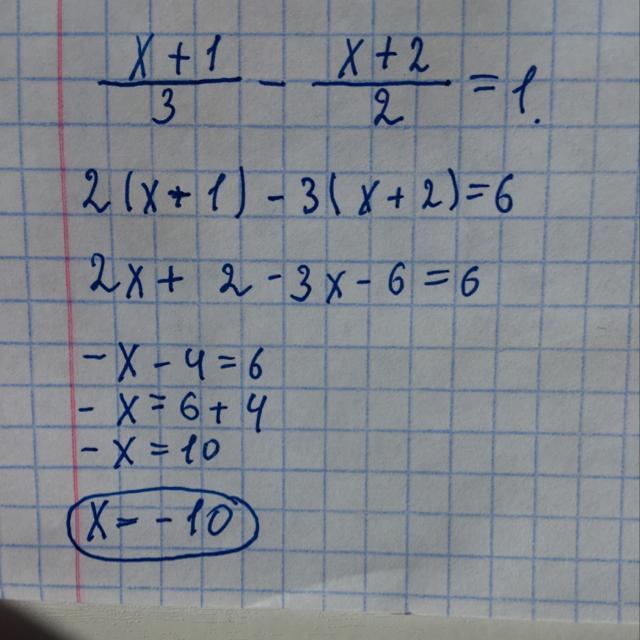 (x+1)/3 - (x+2)/2 = 1.
2(x+1)-3(x+2)=6
2x+2-3x-6=6
-x-4=6
-x=6+4
-x=10
x=-10